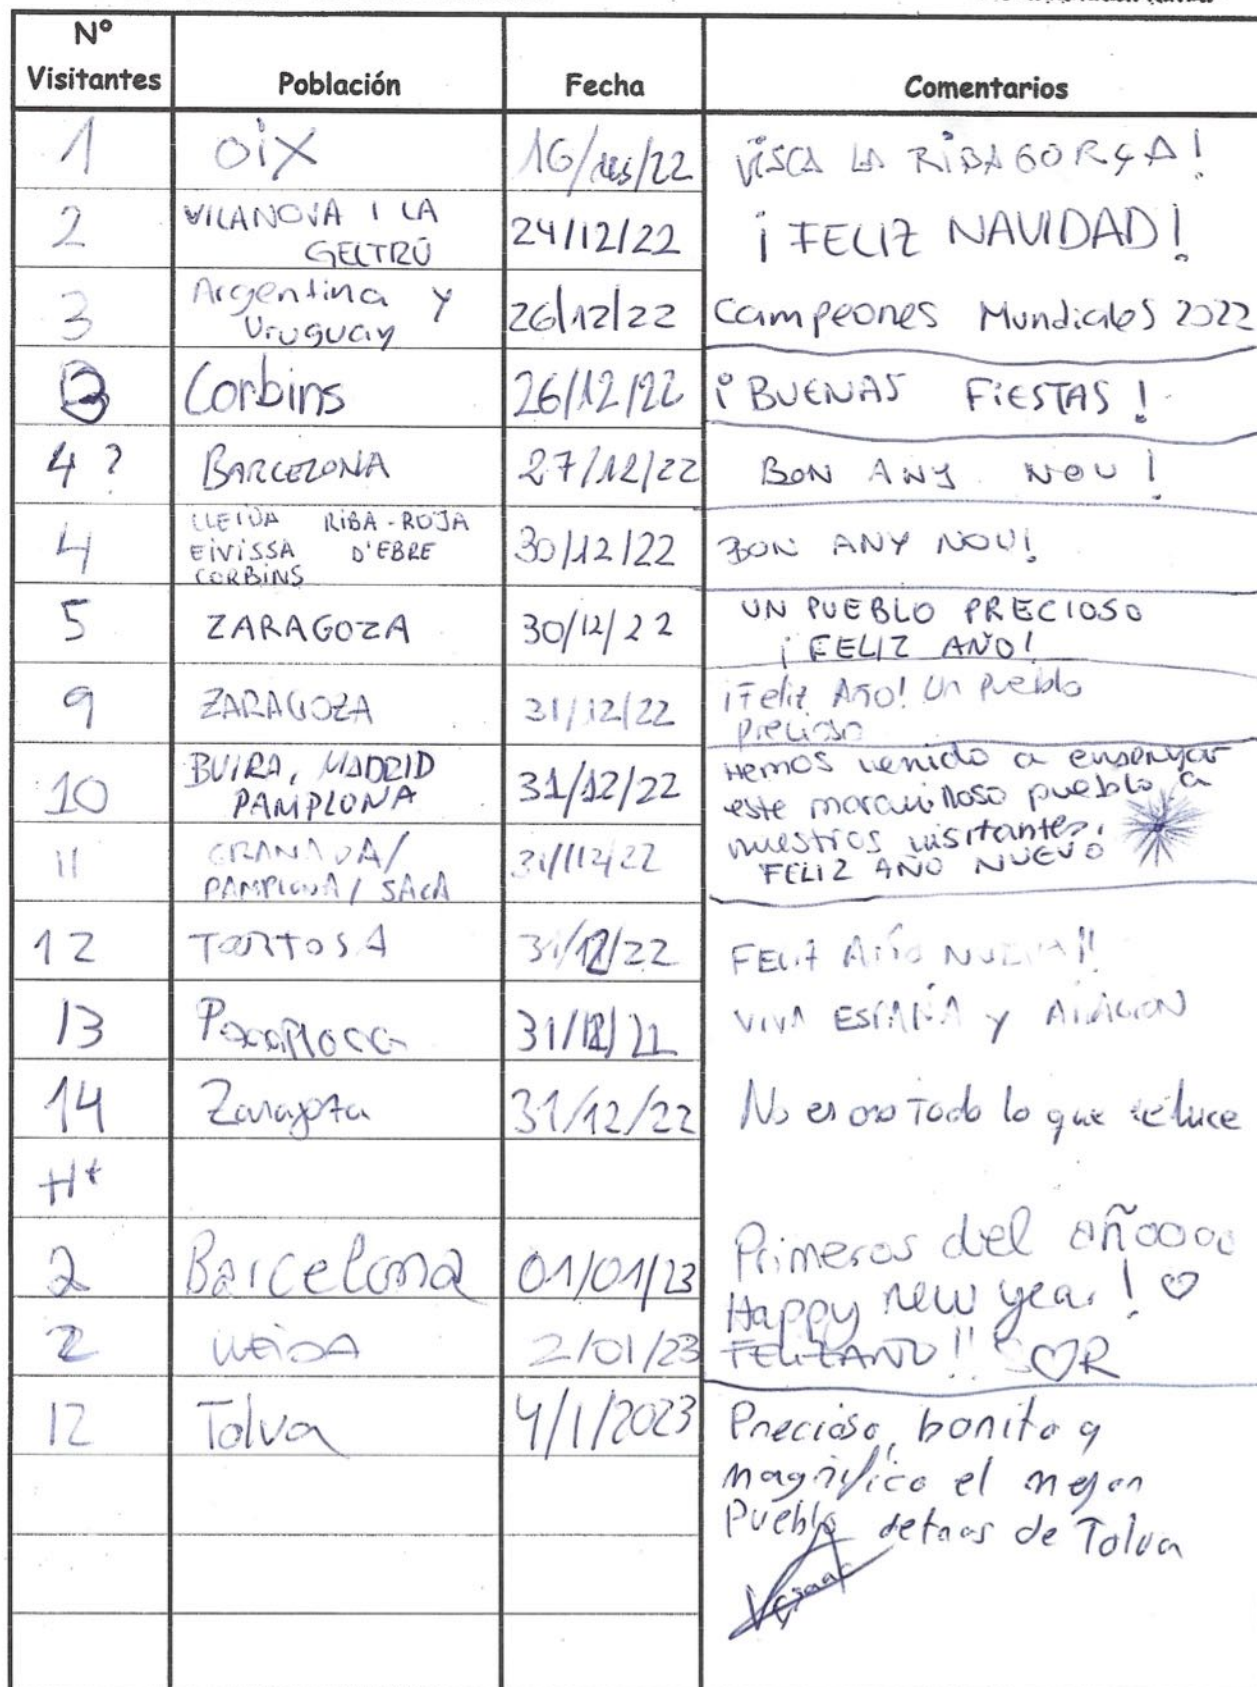 Nº
Visitantes Población Fecha Comentarios
1 OiX 16/ /22 ViSCA LA RiBAGORÇA!
2 VILANOVA I LA GELTRÚ 24/12/22 ¡FELIZ NAVIDAD!
3 Argentina y Uruguay 26/12/22 Campeones Mundiales 2022
3 Corbins 26/12/22 ¡BUENAS FiESTAS!
4 ? BARCELONA 27/12/22 BON ANY NOU!
4 LLEIDA RiBA-ROJA
EiViSSA D'EBRE
CORBiNS 30/12/22 BON ANY NOU!
5 ZARAGOZA 30/12/22 UN PUEBLO PRECIOSO
¡FELIZ AÑO!
9 ZARAGOZA 31/12/22 ¡Feliz Año! Un pueblo
precioso
10 BUIRA, MADRID
PAMPLONA 31/12/22 Hemos venido a ensenyar
este maravilloso pueblo a
nuestros visitantes.
FELIZ AÑO NUEVO
11 GRANADA/
PAMPLONA/ 31/12/22
12 TORTOSA 31/12/22 FELIZ AÑO
13 Pamplona 31/12/22 VIVA ESPAÑA y ARAGON
14 Zaragoza 31/12/22 No es oro Todo lo que reluce
2 Barcelona 01/01/23 Primeros del añoooo
Happy new year! ♡
2 LLEIDA 2/01/23 FELIZ AÑO!! S♡R
12 Tolva 4/1/2023 Precioso, bonito y
magnifico el mejor
Pueblo detras de Tolva